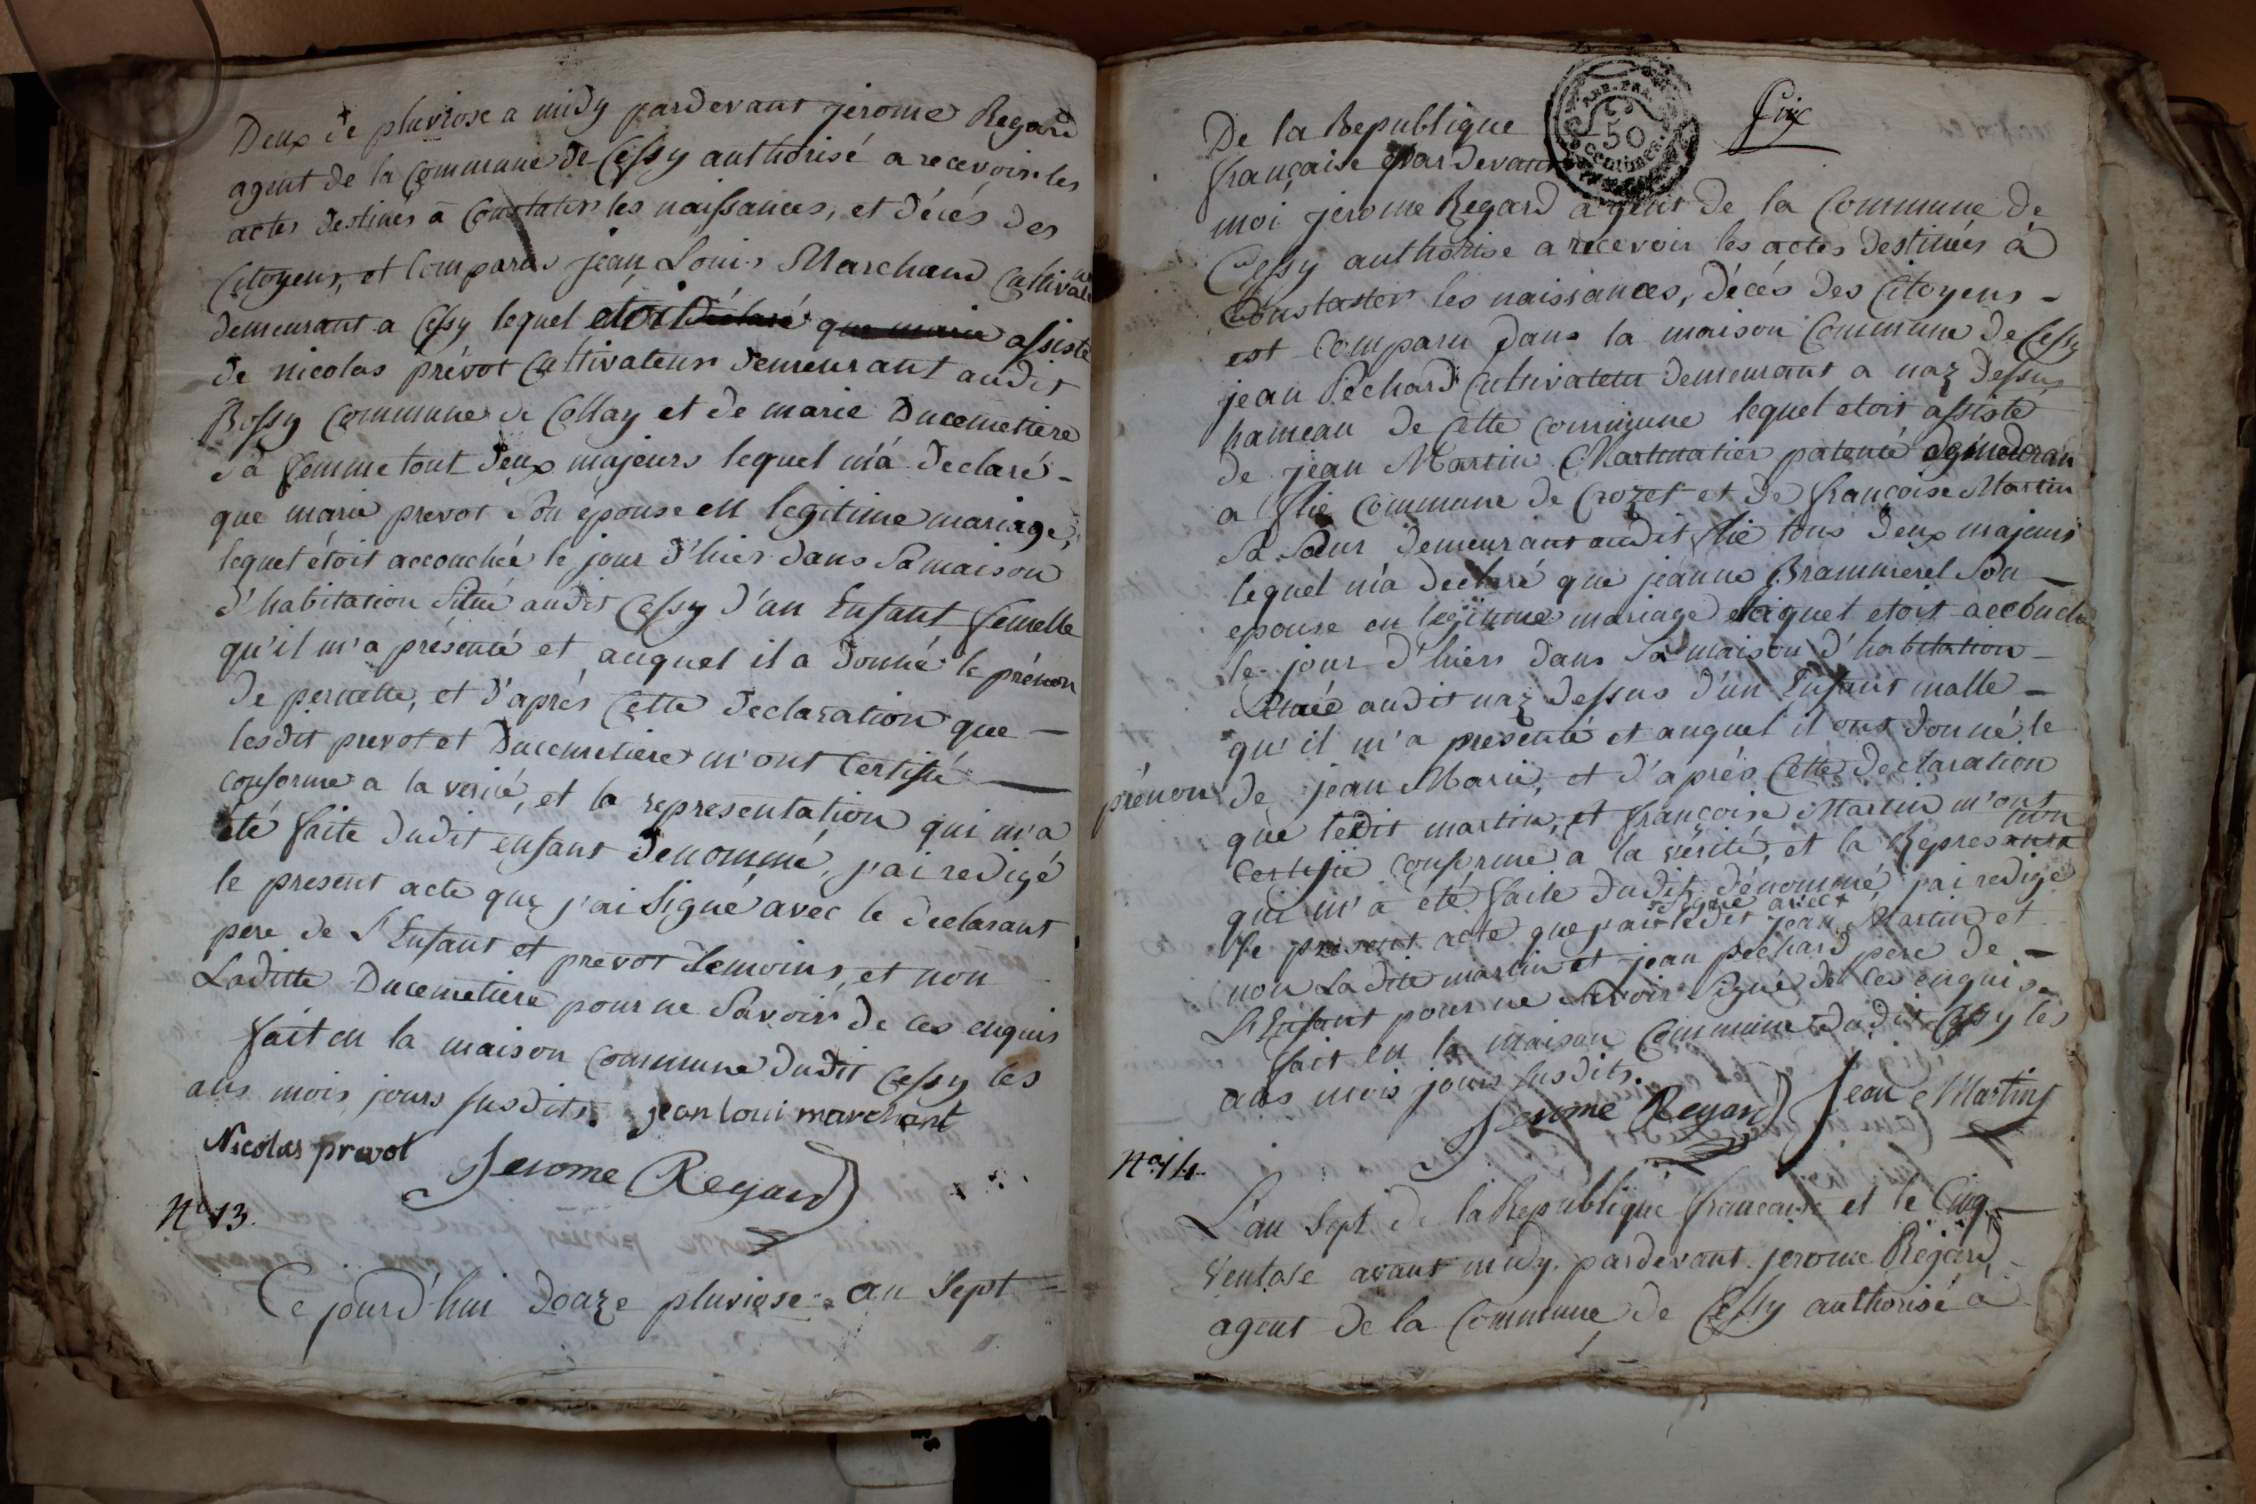 Deux de pluviose a midy pardevant jerome Regard
agent de la Commune de Cessy authorisé a recevoir les
actes destinés a Constater les naissances, et décés des
Citoyens, et Comparus jean Louis Marchand Cultivat
demeurant a Cessy lequel etoit déclaré que marie assisté
de nicolas prévot Cultivateur demeurant audit
Bossy Commune de Collay et de marie Ducemetiere
sa femme tout deux majeurs lequel m'a declaré -
que marie prevot son épouse en legitime mariage,
lequel étoit accouchée le jour d'hier dans sa maison
d'habitation situé audit Cessy d'un Enfant femelle
qu'il m'a présenté et auquel il a donné le prénom
de pernette, et d'aprés Cette declaration que -
lesdit prevot et Ducemetiere m'ont Certifié
conforme a la verité, et la representation qui m'a
été faite dudit enfant denommé, j'ai redigé
le present acte que j'ai signé avec le declarant
pere de l'Enfant et prevot temoins, et non
Laditte Ducemetiere pour ne savoir de ces enquis
fait en la maison Commune dudit Cessy les
ans mois jours susdits. jean loui marchant
Nicolas prevot Jerome Regard
No 13.
Ce jourd'hui douze pluviose an Sept
De la Republique
française pardevant
REP. FRA.
50
centimes
moi jerome Regard agent de la Commune de
Cessy authorise a recevoir les actes destinés à
Constater les naissances, décés des Citoyens -
est Comparu dans la maison Commune de Cessy
jean Péchard Cultivateur demeurant a naz dessus
hameau de Cette commune lequel etoit assisté
de jean Martin patenté
a flié Commune de Crozet et de françoise Martin
sa sœur demeurant audit flié tous deux majeurs
lequel m'a declaré que jeanne son -
epouse en legitime mariage laquel etoit accouché
le jour d'hiers dans sa maison d'habitation -
située audit naz dessus d'un Enfant malle -
qu'il m'a présenté et auquel il ont donné le
prénom de jean Marie, et d'aprés Cette declaration
que ledit martin, et françoise Martin m'ont
Certifié Conforme a la vérité, et la Represantation
qui m'a été faite dudit dénommé j'ai redigé
signé avec
le present acte que j'ai ledit jean Martin et
non Ladite martin et jean péchard pere de -
l'Enfant pour ne savoir signé de ces enquis.
fait en la maison Commune dudit Cessy les
ans mois jours susdits.
Jerome Regard Jean Martin
No 14.
L'an Sept de la Republique française et le Cinq
Ventose avant midy pardevant jerome Regard
agent de la Commune de Cessy authorisé à